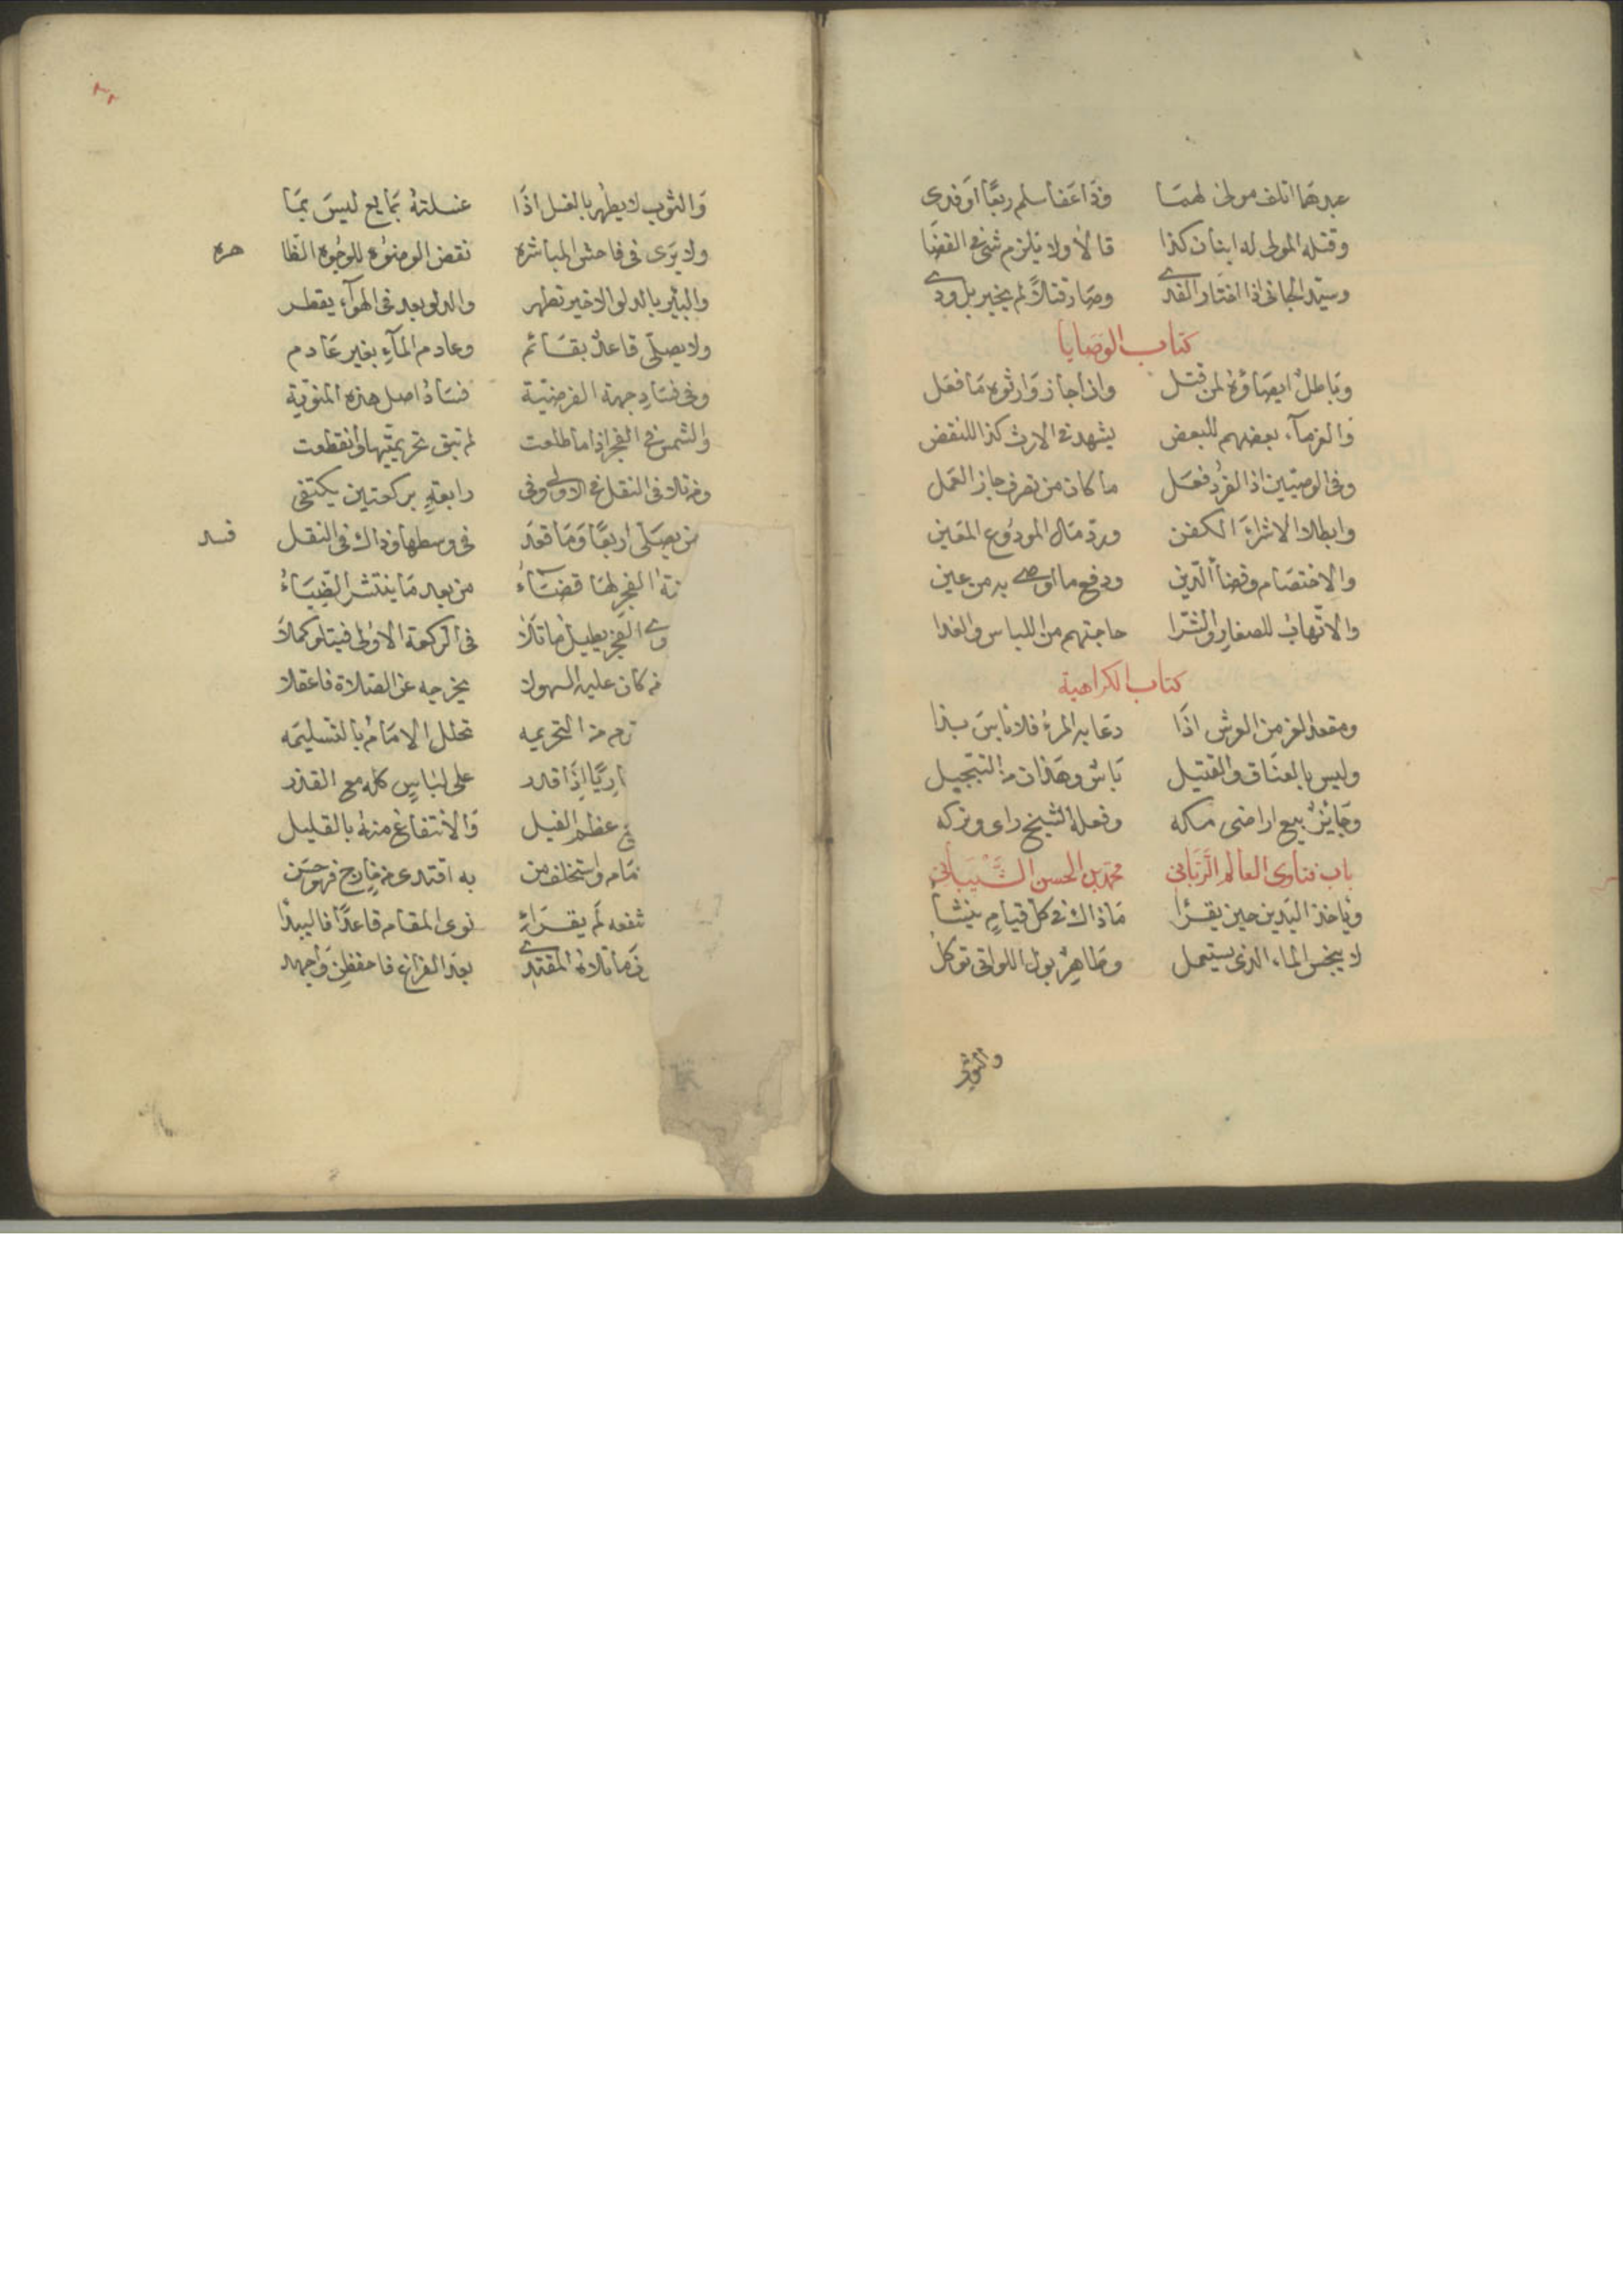 عبدهما اتلف مولى لهما وذا عفا سلم ربعًا أو فدى
وقتله المولى له ابنان كذا قالا ولا يلزم شئ في القضا
وسيد الجاني اذا اختار الفدى وصار قتلاً لم يخير بل ودى
كتاب الوصايا
وباطل ايصاؤه لمن قتل وان اجاز وارثوه ما فعل
والغرماء بعضهم للبعض يشهد في الارث كذا للنقض
وفي الوصيين اذ الفرد فعل ما كان من تصرف جاز العمل
وابطلا الا شراء الكفن ورد مال المودوع المعين
والاختصام وقضاء الدين ودفع ما اوصى به من عين
والاتهاب للصغار والشرا حاجتهم من اللباس والغذا
كتاب الكراهية
ومقعد العز من العرش اذا دعا به المرء فلا باس بذا
وليس بالعناق والتقبيل باس وهذان من التبجيل
وجائز بيع اراضي مكه وفعله الشيخ راى وتركه
باب فتاوى العالم الرباني محمد بن الحسن الشيباني
وياخذ اليدين حين يقرا ماذاك في كل قيام ينشا
لا ينجس الماء الذي يستعمل وطاهر بول اللواتي توكل
والثوب
والثوب لا يطهر بالغسل اذا غسلته بمايع ليس بما
ولا يرى في فاحش المباشره نقض الوضوء للوجوه الظا هره
والبئر بالدلو الاخير تطهر والدلو بعد في الهوآء يقطر
ولا يصلي قاعد بقائم وعادم المآء بغير عادم
وفي فساد جهة الفرضية فساد اصل هذه المنوية
والشمس في الفجر اذا ما طلعت لم تبق تحريمتها وانقطعت
ومن تلا في النفل في الاولى وفي رابعة بركعتين يكتفي
من يصلي اربعًا وما قعد في وسطها وذاك في النفل فسد
نة الفجر لها قضاء من بعد ما ينتشر الضياء
وى الفجر يطيل ما تلا في الركعة الاولى فيتلو كملا
من كان عليه السهو لا يخرجه عن الصلاة فاعقلا
من التحريمه تحلل الامام بالتسليمه
اريًا اذا قدر على لباس كله مع القذر
في عظم الفيل والانتفاع منه بالقليل
مام واستخلف من به اقتدى من خارج فهو حسن
شفعه لم يقرا نوى المقام قاعدًا فاليبدا
ما تلاه المقتدى بعد الفراغ فاحفظن واجهد